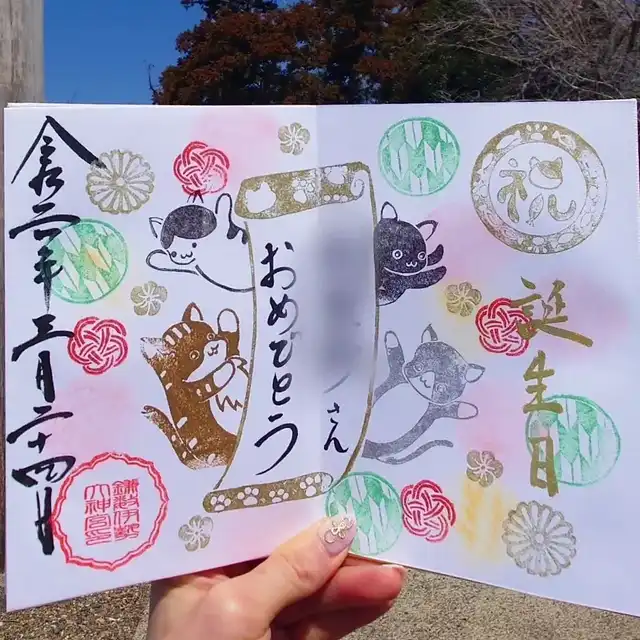 祝
誕生日
さん
おめでとう
令和二年三月二十四日
鎌数伊勢
大神宮印